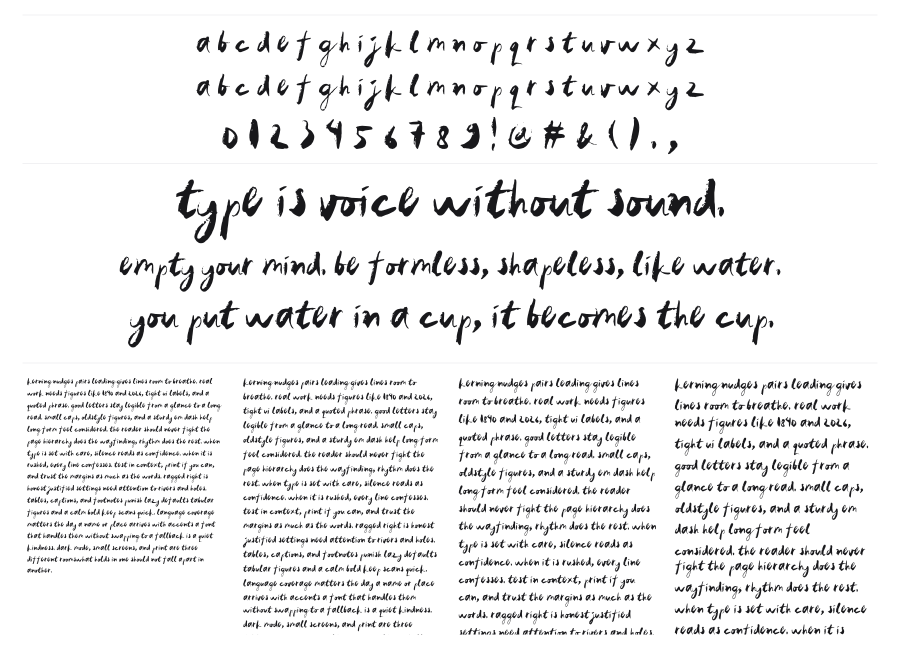 a b c d e f g h i j k l m n o p q r s t u v w x y z
a b c d e f g h i j k l m n o p q r s t u v w x y z
0 1 2 3 4 5 6 7 8 9 ! @ # & ( ) . ,
type is voice without sound.
empty your mind. be formless, shapeless, like water.
you put water in a cup, it becomes the cup.
kerning nudges pairs leading gives lines room to breathe. real
work. needs figures like 1890 and 2026, tight ui labels, and a
quoted phrase. good letters stay legible from a glance to a long
read. small caps, oldstyle figures, and a sturdy em dash help
long form feel considered. the reader should never fight the
page hierarchy does the wayfinding, rhythm does the rest. when
type is set with care, silence reads as confidence. when it is
rushed, every line confesses. test in context, print if you can,
and trust the margins as much as the words. ragged right is
honest justified settings need attention to rivers and holes.
tables, captions, and footnotes punish lazy defaults tabular
figures and a calm bold keep scans quick. language coverage
matters the day a name or place arrives with accents a font
that handles them without swapping to a fallback. is a quiet
kindness. dark. mode, small screens, and print are three
different rooms what holds in one should not fall apart in
another.
kerning nudges pairs leading gives lines room to
breathe. real work. needs figures like 1890 and 2026,
tight ui labels, and a quoted phrase. good letters stay
legible from a glance to a long read. small caps,
oldstyle figures, and a sturdy em dash help long form
feel considered. the reader should never fight the
page hierarchy does the wayfinding, rhythm does the
rest. when type is set with care, silence reads as
confidence. when it is rushed, every line confesses.
test in context, print if you can, and trust the
margins as much as the words. ragged right is honest
justified settings need attention to rivers and holes.
tables, captions, and footnotes punish lazy defaults
tabular figures and a calm bold keep scans quick.
language coverage matters the day a name or place
arrives with accents a font that handles them
without swapping to a fallback. is a quiet kindness.
dark. mode, small screens, and print are three
kerning nudges pairs leading gives lines
room to breathe. real work. needs figures
like 1890 and 2026, tight ui labels, and a
quoted phrase. good letters stay legible
from a glance to a long read. small caps,
oldstyle figures, and a sturdy em dash help
long form feel considered. the reader
should never fight the page hierarchy does
the wayfinding, rhythm does the rest. when
type is set with care, silence reads as
confidence. when it is rushed, every line
confesses. test in context, print if you
can, and trust the margins as much as the
words. ragged right is honest justified
settings need attention to rivers and holes.
kerning nudges pairs leading gives
lines room to breathe. real work.
needs figures like 1890 and 2026,
tight ui labels, and a quoted phrase.
good letters stay legible from a
glance to a long read. small caps,
oldstyle figures, and a sturdy em
dash help long form feel
considered. the reader should never
fight the page hierarchy does the
wayfinding, rhythm does the rest.
when type is set with care, silence
reads as confidence. when it is